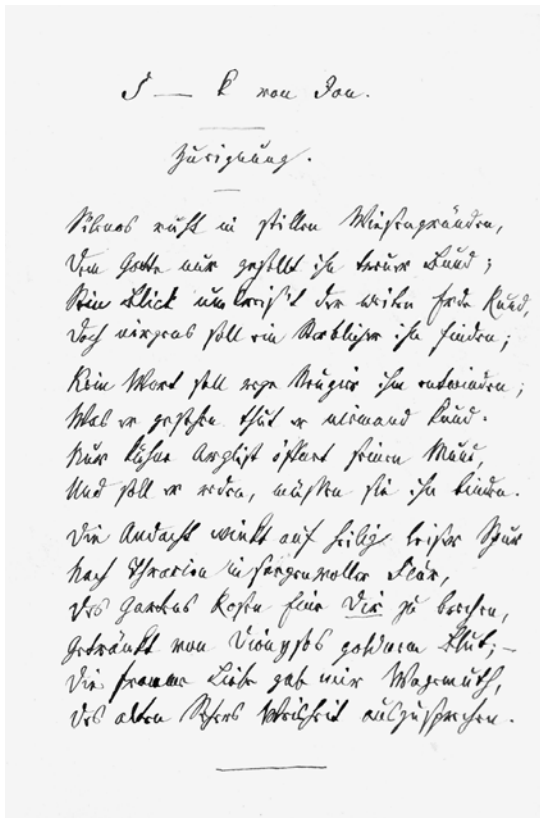 J — L von Jon.
Zueignung.
Silenos ruht in stillen Wiesengründen,
Dem Gotte nur gesellt ihn treuer Bund;
Sein Blick umkreis't der weiten Erde Rund,
Doch nirgens soll ein Sterblicher ihn finden;
Kein Wort soll rege Neugier ihm entwinden;
Was er gesehen thut er niemand kund.
Nur kühne Arglist öffnet seinen Mund,
Und soll er reden, müssen sie ihn binden.
Die Andacht winkt auf heilig leiser Spur
Nach Thracien in segenvolle Flur,
Des Gartens Rosen für Dir zu brechen,
Getränkt von Dionysos goldnem Blut; –
Die fromme Liebe gab mir Wagemuth,
Des alten Sehers Weisheit auszusprechen.